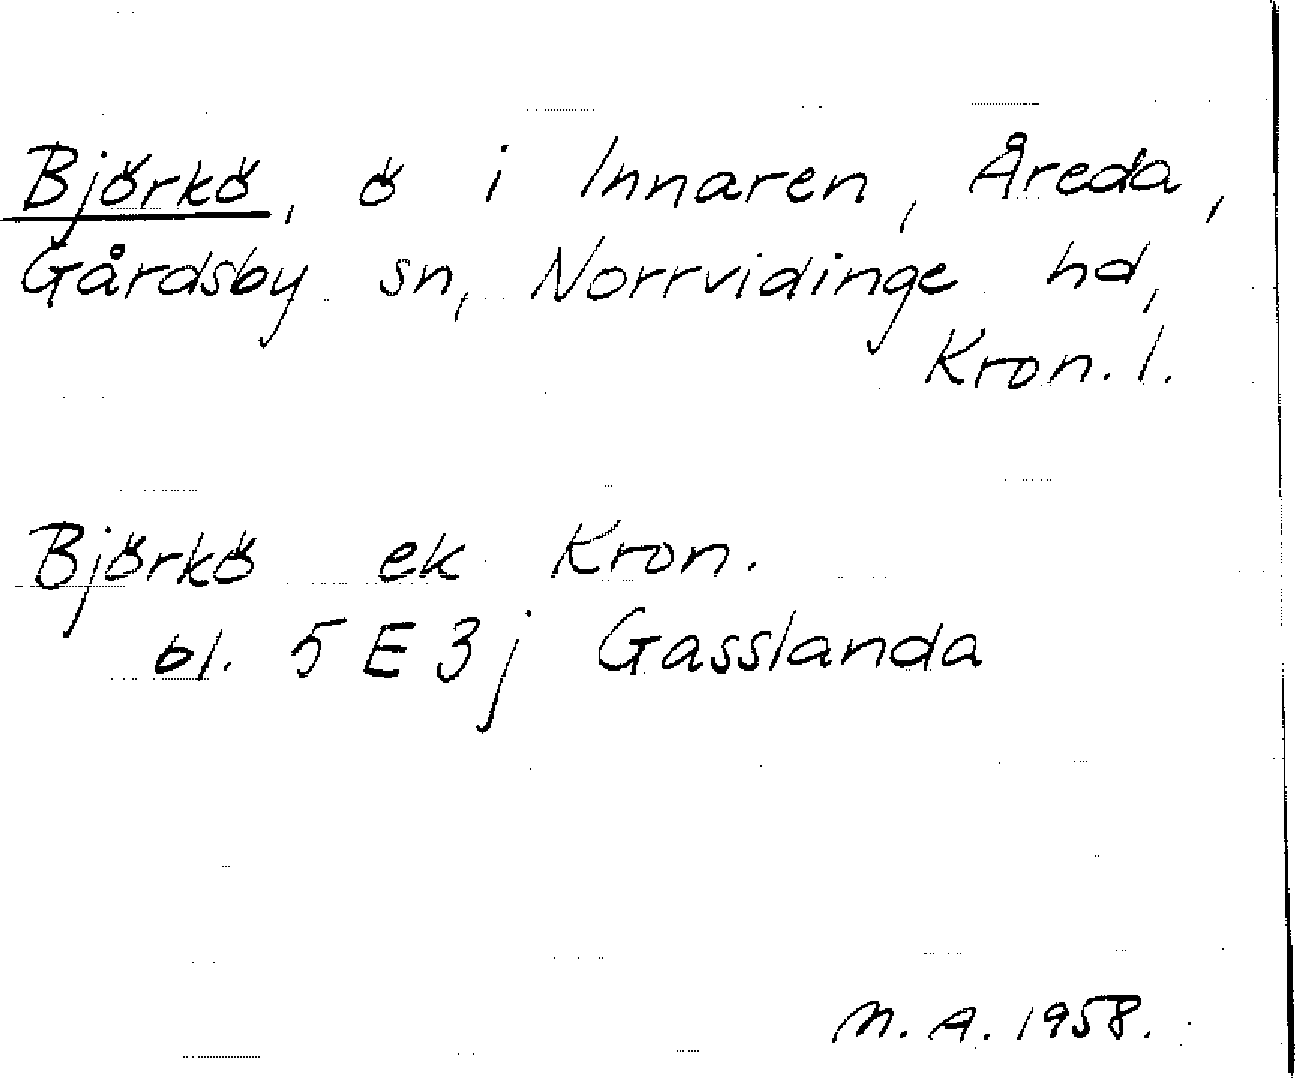 Björkö, ö i Innaren, Åreda,
Gårdsby sn, Norrvidinge hd,
Kron. l.
Björkö ek Kron.
bl. 5 E 3 j Gasslanda
M. A. 1958.